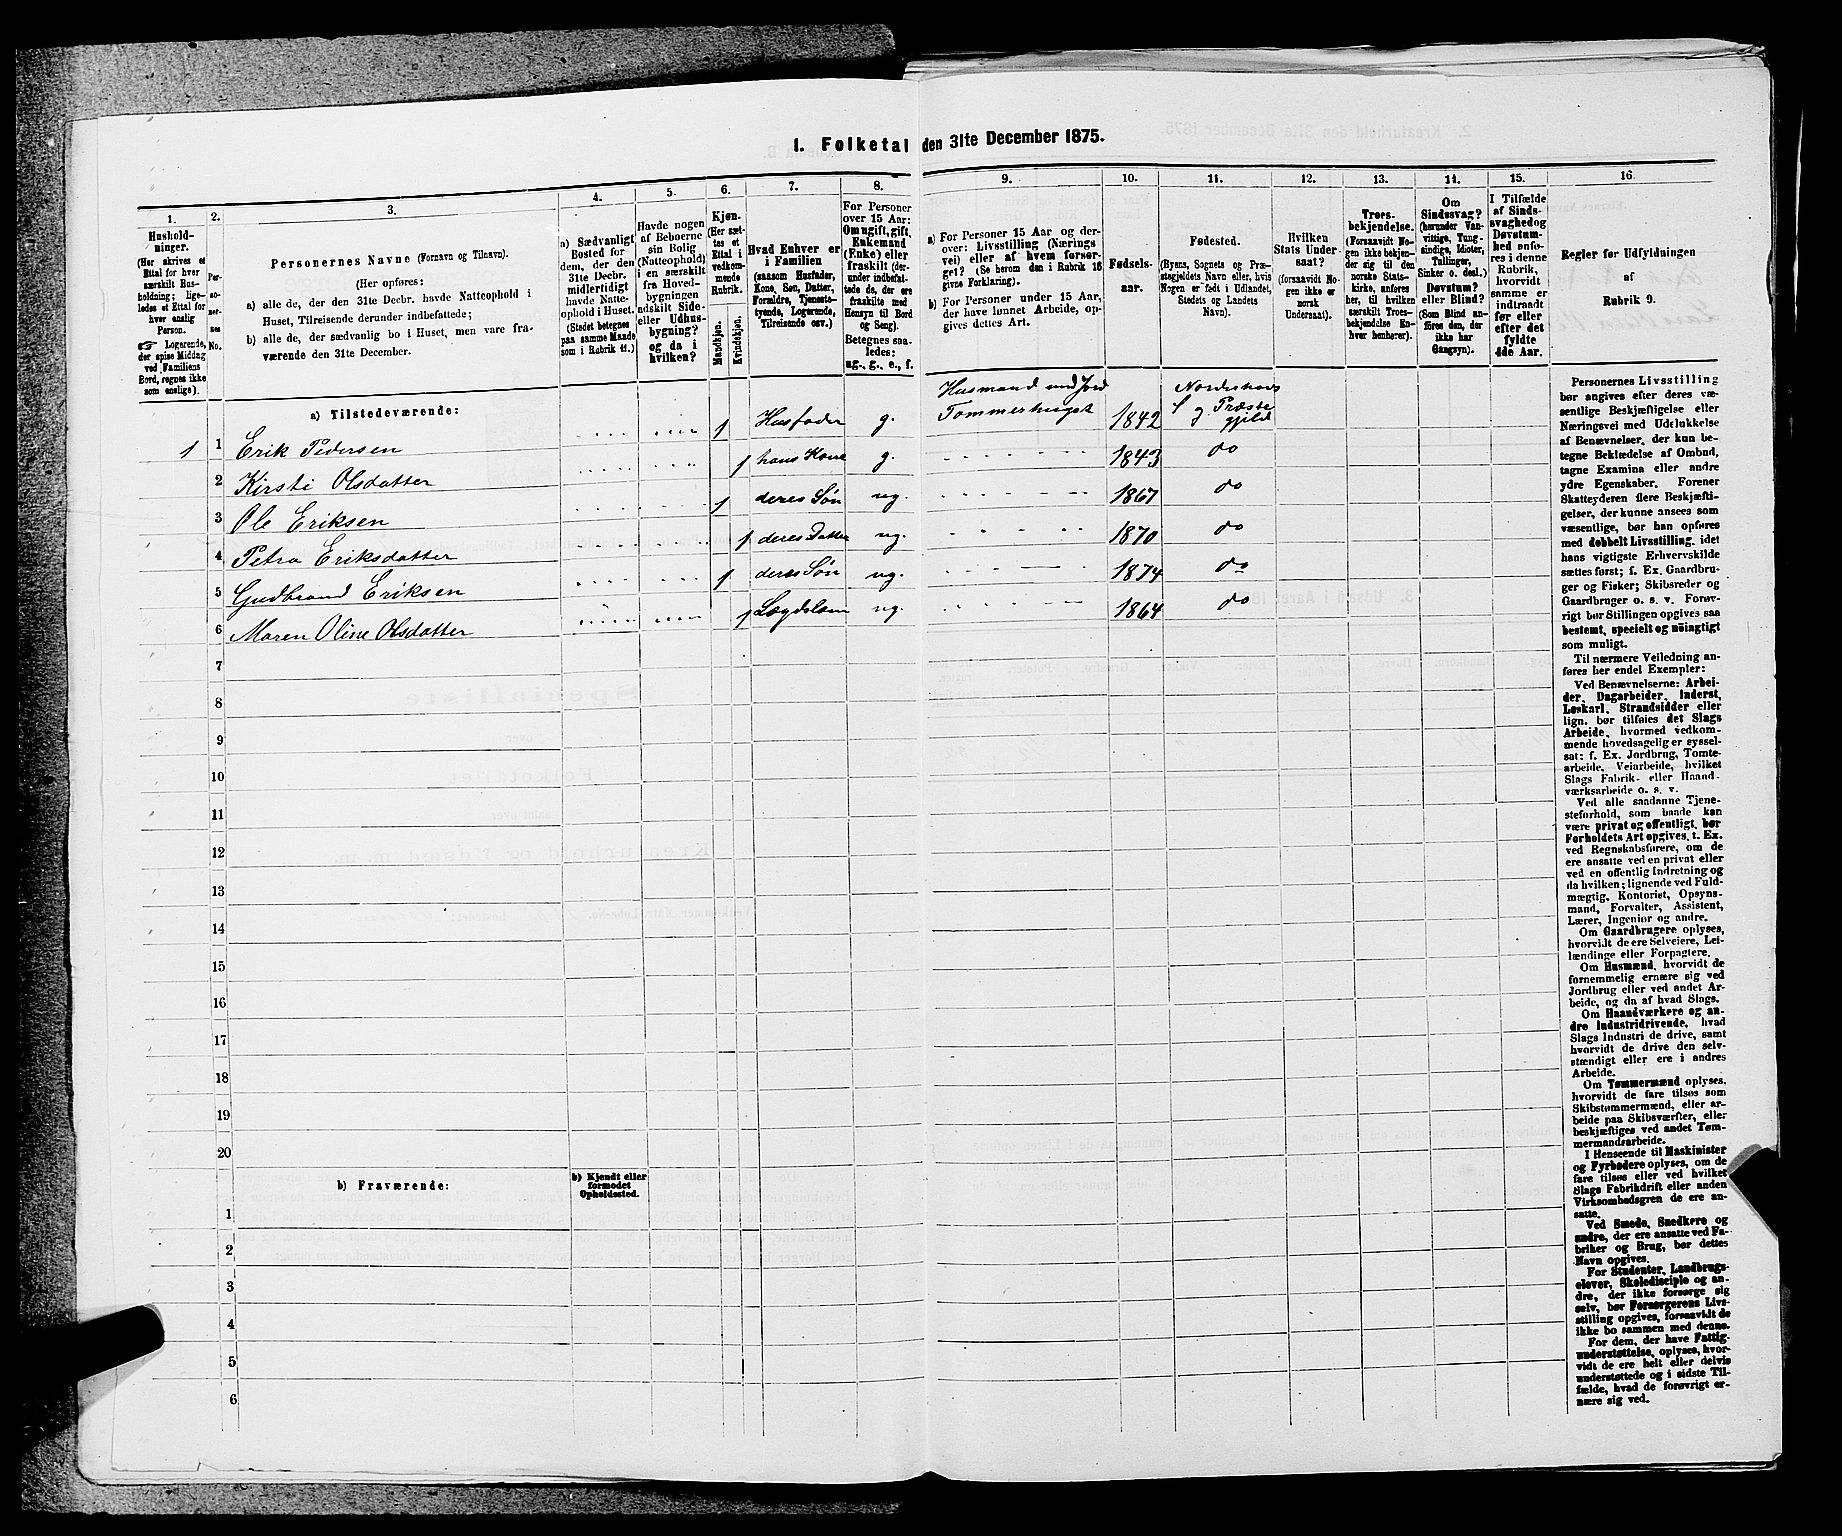 1. Folketal den 31te December 1875.
1. 2. 3. 4. 5. 6. 7. 8. 9. 10. 11. 12. 13. 14. 15. 16.
Husholdninger.
(Her skrives et
Ettal for hver
særskilt Husholdning;
ligeledes et Ettal for
hver enslig
Person.
☞ Logerende,
der spise Middag
ved Familiens
Bord, regnes ikke
som enslige).
Personernes No.
Personernes Navne (Fornavn og Tilnavn).
(Her opføres:
a) alle de, der den 31te Decbr. havde Natteophold i
Huset, Tilreisende derunder indbefattede;
b) alle de, der sædvanlig bo i Huset, men vare fraværende
den 31te December.
a) Sædvanligt
Bosted for
dem, der den
31te Decbr.
midlertidigt
havde Natteophold
i Huset.
(Stedet betegnes
paa samme Maade
som i Rubrik 11.)
Havde nogen
af Beboerne
sin Bolig
(Natteophold)
i en særskilt
fra Hovedbygningen
adskilt Side-
eller Udhusbygning?
og da i
hvilken?
Kjøn.
(Her sættes
et
Ettal i
vedkommende
Rubrik.
Mandkjøn.
Kvindekjøn.
Hvad Enhver er
i Familien
(saasom Husfader,
Kone, Søn, Datter,
Forældre, Tjenestetyende,
Logerende,
Tilreisende osv.)
For Personer
over 15 Aar:
Om ugift, gift,
Enkemand
(Enke) eller
fraskilt (derunder
indbefattede
de, der ere
fraskilte med
Hensyn til Bord
og Seng).
Betegnes saaledes:
ug., g., e., f.
a) For Personer 15 Aar og derover:
Livsstilling (Næringsvei)
eller af hvem forsørget?
(Se herom den i Rubrik 16
givne Forklaring).
b) For Personer under 15 Aar,
der have lønnet Arbeide, opgives
dettes Art.
Fødselsaar.
Fødested.
(Byens, Sognets og Præstegjældets
Navn eller, hvis
Nogen er født i Udlandet,
Stedets og Landets
Navn).
Hvilken
Stats Undersaat?
(forsaavidt Nogen
ikke er
norsk
Undersaat).
Troesbekjendelse.
(Forsaavidt Nogen
ikke bekjender
sig til den
norske Statskirke,
anføres
her, til hvilken
særskilt Troesbekjendelse
Enhver
henhører).
Om
Sindssvag?
(herunder Vanvittige,
Tungsindige,
Idioter,
Tullinger,
Sinker o. desl.)
Døvstum?
eller Blind?
(Som Blind anføres
den, der
ikke har
Gangsyn).
I Tilfælde
af Sindssvaghed
og
Døvstumhed
anføres
i denne
Rubrik,
hvorvidt
samme er
indtraadt
før eller
efter det
fyldte
4de Aar.
Regler for Udfyldningen
af
Rubrik 9.
a) Tilstedeværende:
1 1 Erik Pedersen 1 Husfader g. Husmand med Jord Tømmerhugst 1842 Norderhovs S. og Præstegjeld
2 Kirsti Olsdatter 1 hans Kone g. 1843 do
3 Ole Eriksen 1 deres Søn ug. 1867 do
4 Petra Eriksdatter 1 deres Datter ug. 1870 do
5 Gudbrand Eriksen 1 deres Søn ug. 1874 do
6 Maren Oline Olsdatter 1 Lægdslem ug. 1864 do
7
8
9
10
11
12
13
14
15
16
17
18
19
20
b) Fraværende:
b) Kjendt eller
formodet
Opholdssted.
1
2
3
4
5
6
Personernes Livsstilling
bør angives efter deres væsentlige
Beskjæftigelse eller
Næringsvei med Udelukkelse
af Benævnelser, der kun betegne
Beklædelse af Ombud,
tagne Examina eller andre
ydre Egenskaber. Forener
Skatteyderen flere Beskjæftigelser,
der kunne ansees som
væsentlige, bør han opføres
med dobbelt Livsstilling, idet
hans vigtigste Erhvervskilde
sættes først; f. Ex. Gaardbruger
og Fisker; Skibsreder og
Gaardbruger o. s. v. Forøvrigt
bør Stillingen opgives saa
bestemt, specielt og nøiagtigt
som muligt.
Til nærmere Veiledning anføres
her endel Exempler:
Ved Benævnelserne: Arbeider,
Dagarbeider, Inderst,
Løskarl, Strandsidder eller
lign. bør tilføies det Slags
Arbeide, hvormed vedkommende
hovedsagelig er sysselsat:
f. Ex. Jordbrug, Tomtearbeide,
Veiarbeide, hvilket
Slags Fabrik- eller Haandværksarbeide
o. s. v.
Ved alle saadanne Tjenesteforhold,
som baade kan
være privat og offentligt, bør
Forholdets Art opgives, t. Ex.
ved Regnskabsførere, om de
ere ansatte ved en privat eller
ved en offentlig Indretning og
da hvilken; lignende ved Fuldmægtig,
Kontorist, Opsynsmand,
Forvalter, Assistent,
Lærer, Ingeniør og andre.
Om Gaardbrugere oplyses,
hvorvidt de ere Selveiere, Leilændinge
eller Forpagtere.
Om Husmænd, hvorvidt de
fornemmelig ernære sig ved
Jordbrug eller ved andet Arbeide,
og da af hvad Slags.
Om Haandværkere og andre
Industridrivende, hvad
Slags Industri de drive, samt
hvorvidt de drive den selvstændigt
eller ere i andres
Arbeide.
Om Tømmermænd oplyses,
hvorvidt de fare tilsøs som
Skibstømmermænd, eller arbeide
paa Skibsværfter, eller
beskjæftiges ved andet Tømmermandsarbeide.
I Henseende til Maskinister
og Fyrbødere oplyses, om de
fare tilsøs eller ved hvilket
Slags Fabrikdrift eller anden
Virksomhedsgren de ere ansatte.
Ved Smede, Snedkere og
andre, der ere ansatte ved Fabriker
og Brug, bør dettes
Navn opgives.
For Studenter, Landbrugselever,
Skoledisciple og andre,
der ikke forsørge sig
selv, bør Forsørgerens Livsstilling
opgives, forsaavidt de
ikke bo sammen med denne.
For dem, der have Fattigunderstøttelse,
oplyses, hvorvidt
de ere helt eller delvis
understøttede og i sidste Tilfælde,
hvad de forøvrigt ernære
sig ved.